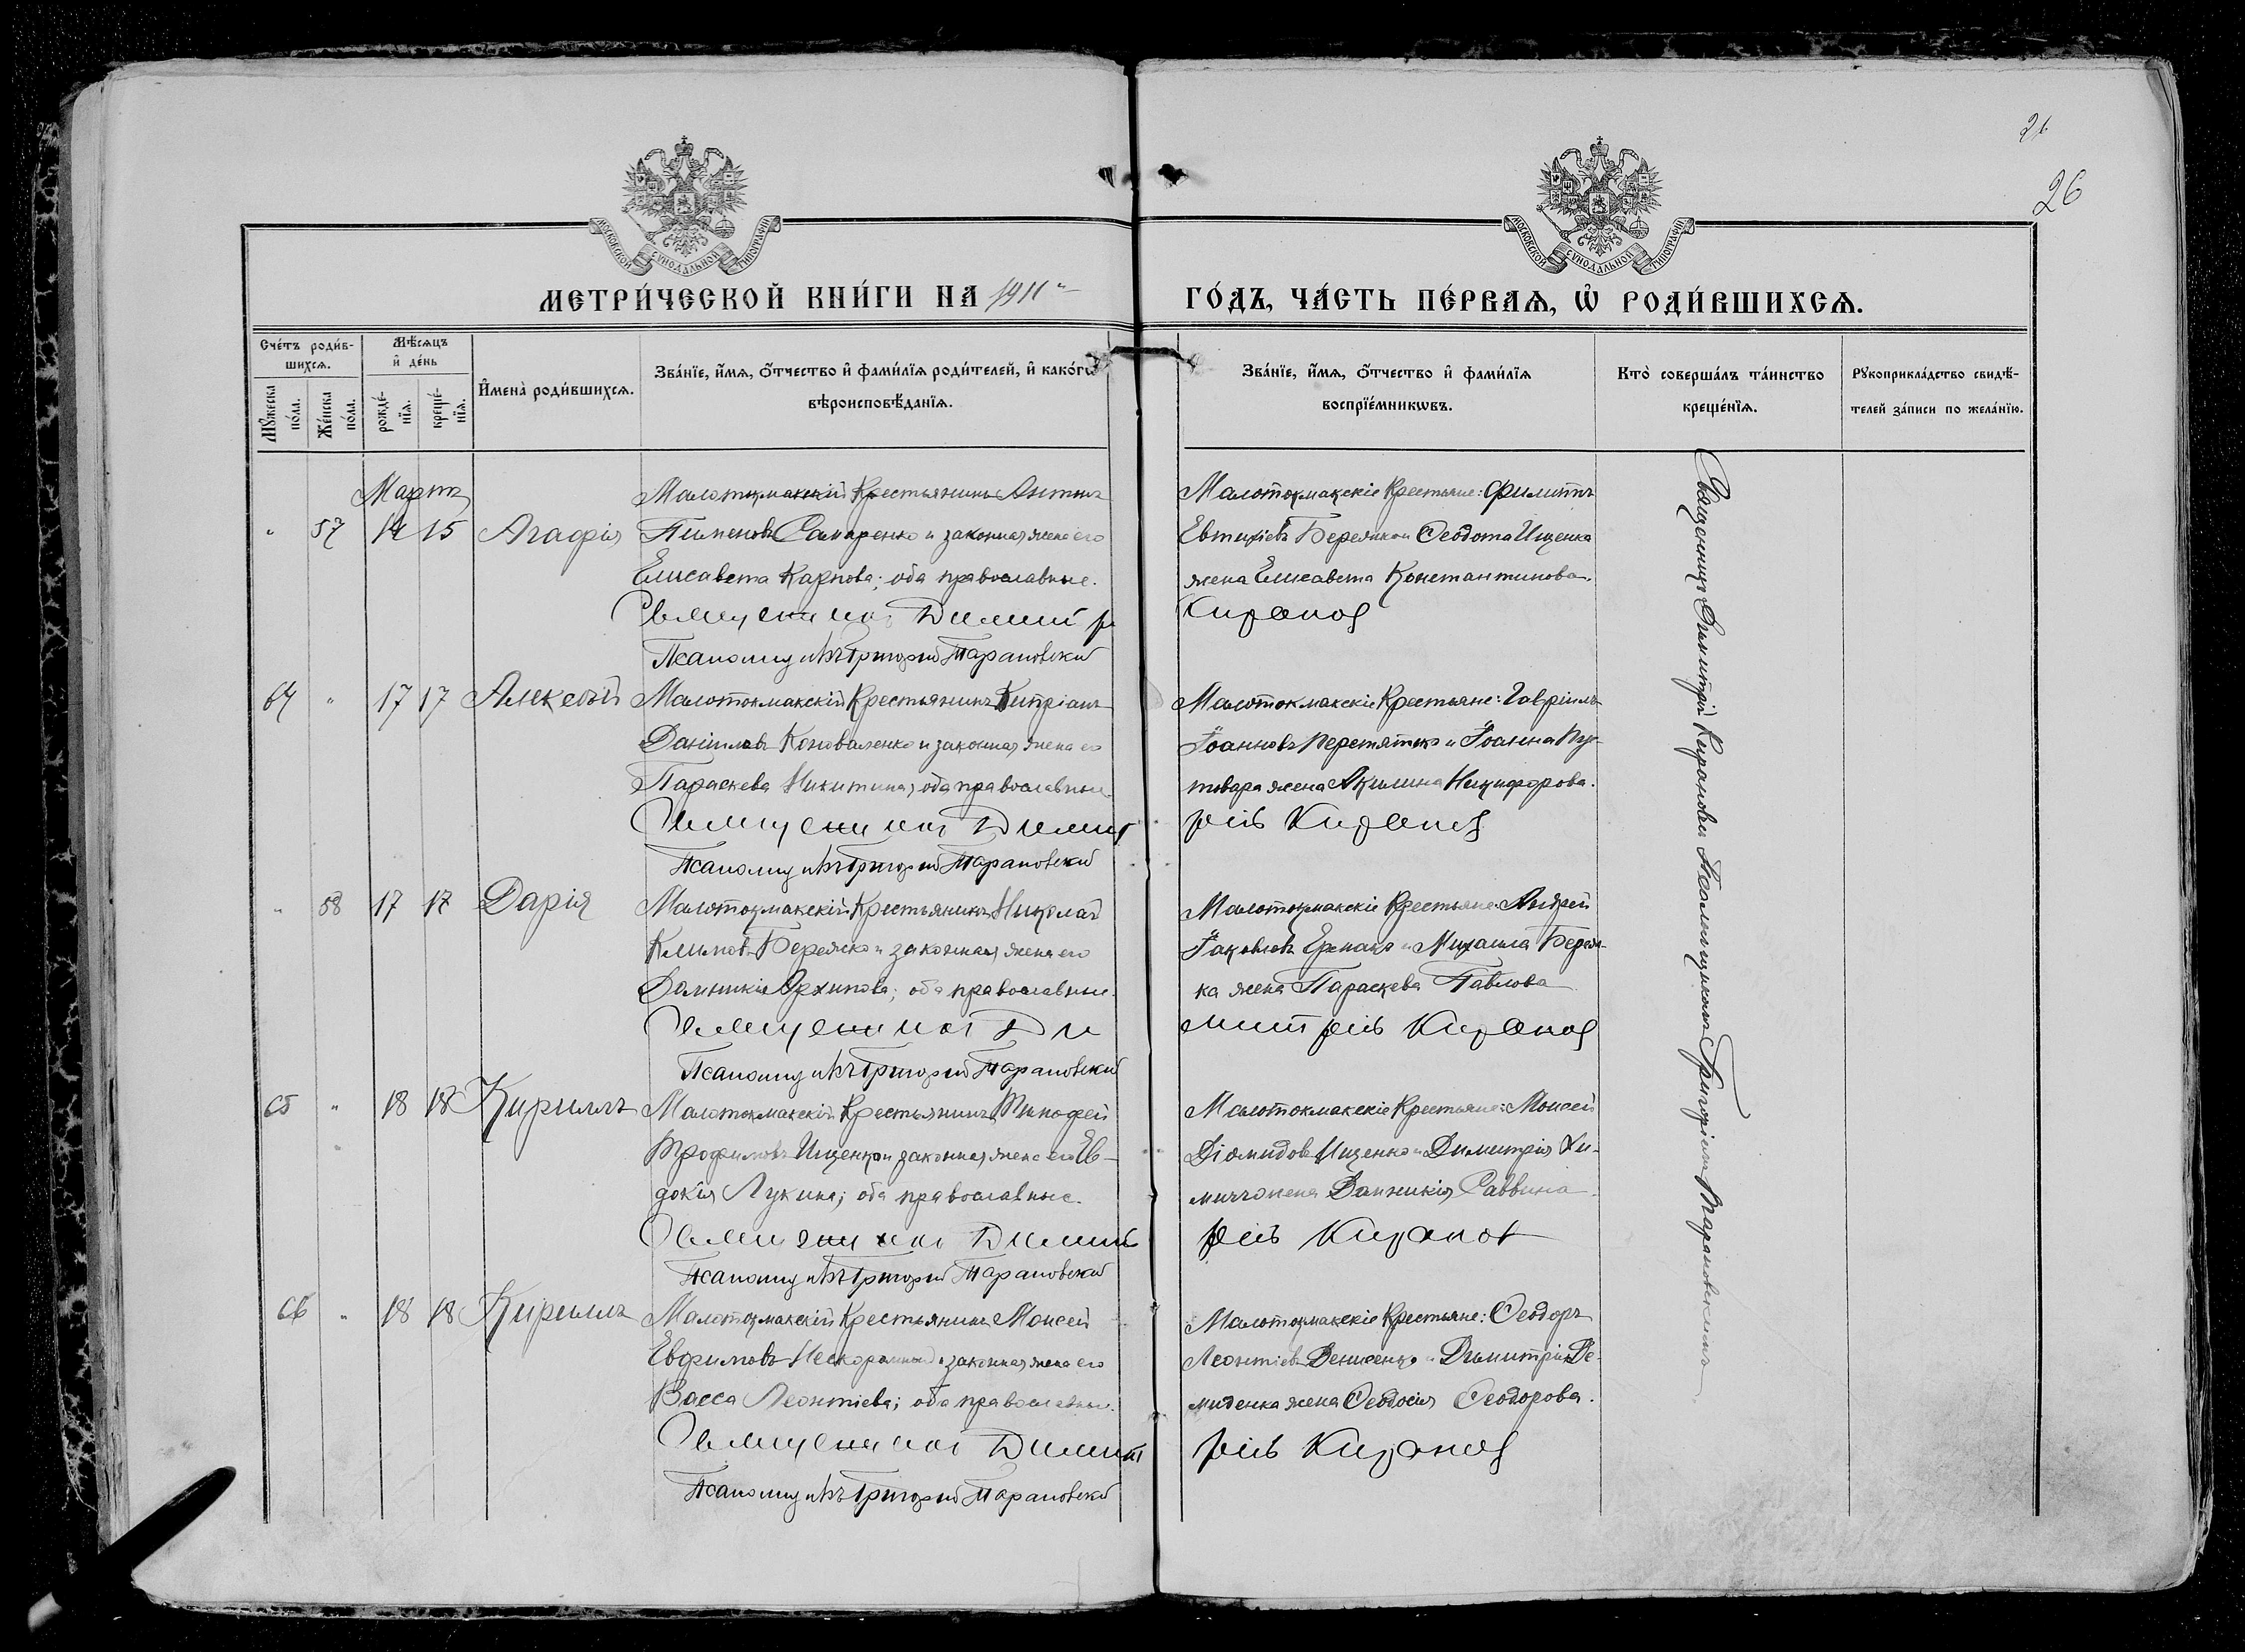 26
26
МОСКОВСКОЙ СѴНОДАЛЬНОЙ ТИПОГРАФІИ
МОСКОВСКОЙ СѴНОДАЛЬНОЙ ТИПОГРАФІИ
МЕТРИ́ЧЕСКОЙ КНИ́ГИ НА 1911 ГО́ДЪ, ЧА́СТЬ ПЕ́РВАѦ, Ѡ҆ РОДИ́ВШИХСѦ.
Сче́тъ роди́в-
шихсѧ.
Мꙋ́жеска по́ла.
Же́нска по́ла.
Мѣ́сѧцъ
и҆ де́нь
рожде́-
нїѧ.
креще́-
нїѧ.
И҆мена̀ роди́вшихсѧ.
Зва́нїе, и҆́мѧ, ѻ҆́тчество и҆ фами́лїѧ роди́телей, и҆ како́гѡ
вѣроисповѣ́данїѧ.
Зва́нїе, и҆́мѧ, ѻ҆́тчество и҆ фами́лїѧ
воспрїе́мникѡвъ.
Кто̀ соверша́лъ та́инство
креще́нїѧ.
Рꙋкоприкла́дство свидѣ́-
телей за́писи по жела́нїю.
Мартъ
" 57 14 15 Агафія
Малотокмакскій Крестьянинъ Антонъ
Пименовъ Самаренко и законная жена его
Елисавета Карпова; оба православные.
Священникъ Димитрі
Псаломщикъ Григорій Тарановскій
Малотокмакскіе Крестьяне: Филиппъ
Евтихіевъ Бережко и Ѳеодота Ищенка
жена Елисавета Константинова.
Киранов
64 " 17 17 Алексѣй
Малотокмакскій Крестьянинъ Кипріанъ
Даніиловъ Коноваленко и законная жена его
Параскева Никитина, оба православные
Священникъ Димит
Псаломщикъ Григорій Тарановскій
Малотокмакскіе Крестьяне: Гавріилъ
Іоанновъ Перетятько и Іоанна
жена Акилина Никифорова.
рій Киранов
" 58 17 17 Дарія
Малотокмакскій Крестьянинъ Николай
Климовъ Бережко и законная жена его
Домникія Архипова; оба православные.
Священникъ Ди
Псаломщикъ Григорій Тарановскій
Малотокмакскіе Крестьяне: Андрей
Іаковлевъ и Михаила Береж-
ка жена Параскева Павлова
митрій Киранов
65 " 18 18 Кириллъ
Малотокмакскій Крестьянинъ Тимофей
Трофимовъ Ищенко и законная жена его Ев-
докія Лукина; оба православные.
Священникъ Димит
Псаломщикъ Григорій Тарановскій
Малотокмакскіе Крестьяне: Моисей
Діомидовъ Ищенко и Димитрія
жена Домникія Саввина.
рій Киранов
66 " 18 18 Кириллъ
Малотокмакскій Крестьянинъ Моисей
Евфимовъ Нескоромный и законная жена его
Васса Леонтіева; оба православные.
Священникъ Димит
Псаломщикъ Григорій Тарановскій
Малотокмакскіе Крестьяне: Ѳеодоръ
Леонтіевъ Денисенко и Димитрія Де-
миденка жена Ѳеодосія Ѳеодорова.
рій Киранов
Священникъ Димитрій Кирановъ съ Псаломщикомъ Григоріемъ Тарановскимъ